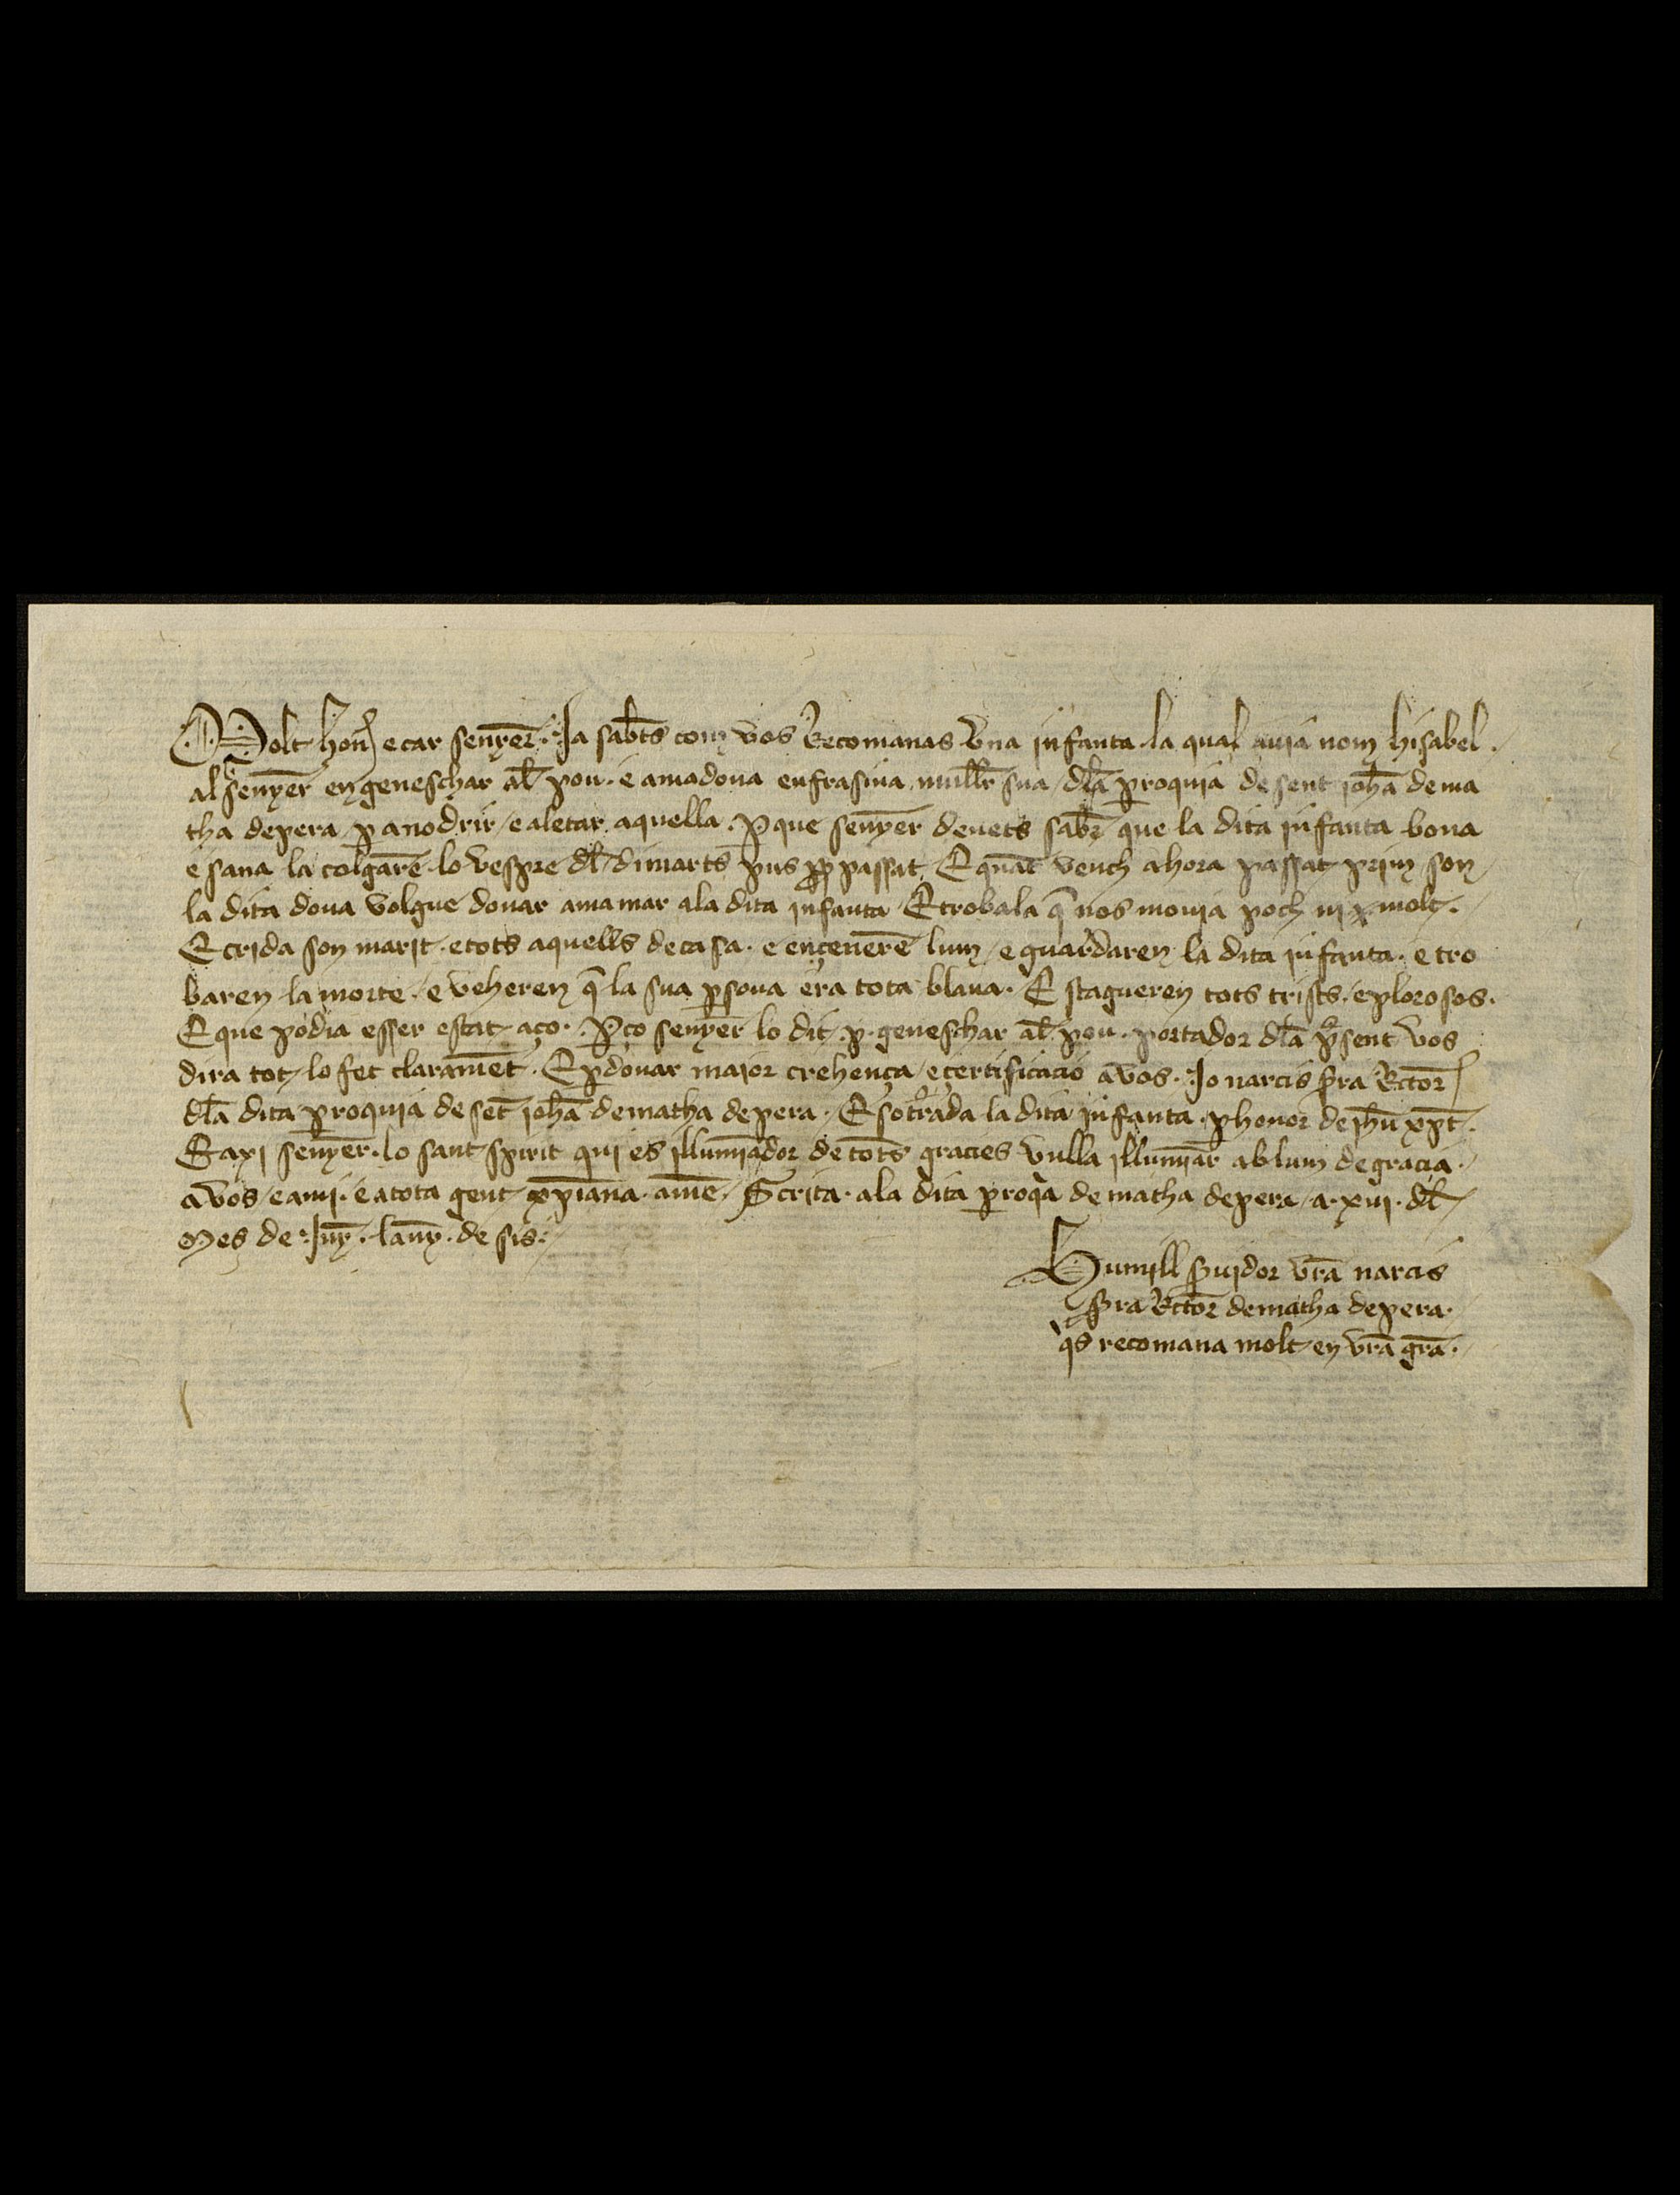 Molt honͬ e car senyer. Ja sabets com vos Recomanas una jnfanta la qual auia nom hisabel.
al senyer en geneschar al̅s pou. e a madona eufrasina mull̅r sua / dl̅a p̱roquia de sent joh̅a de ma
tha depera / p̱ a nodrir / e aletar aquella. P̱ que senyer deuets sab̅r que la dita jnfanta bona
e sana la colgare̅ lo vespre dl̅ dimarts pus p̱p̱ passat / E qua̅t vench a hora passat prim son /
la dita dona volgue donar a mamar a la dita jnfanta / E trobala q̅ nos mouia poch ni molt.
E crida son marit. e tots aquells de casa. e ençenere̅ lum / e guardaren la dita jnfanta. e tro
baren la morte. e veheren q̅ la sua p̱sona era tota blaua. E stagueren tots trists. e plorosos.
E que podia esser estat aço. P̱ço senyer lo dit. p. geneschar al̅s pou. portador dl̅a p̅sent vos
dira tot lo fet clarame̅t. E p̱ donar major crehença / e çertificacio a vos. Jo narcis s̱ra Rector
dl̅a dita p̱roquia de se̅t joh̅a de matha depera. E soterrada la dita jnfanta. p̱ honor de jh̅u xp̅t.
E axi senyer. lo sant spirit qui es jlluminador de tots gracies vulla jlluminar ab lum de gracia.
a vos / e a mi. e a tota gent xp̅iana. ame̅. Scrita. a la dita p̱roq̅a de matha depera / a. xvi. dl̅
mes de Juny. lany. de sis.
Humill s̱uidor vr̅a narcis
s̱ra Rector de matha depera.
q̅s recomana molt en vr̅a gr̅a.